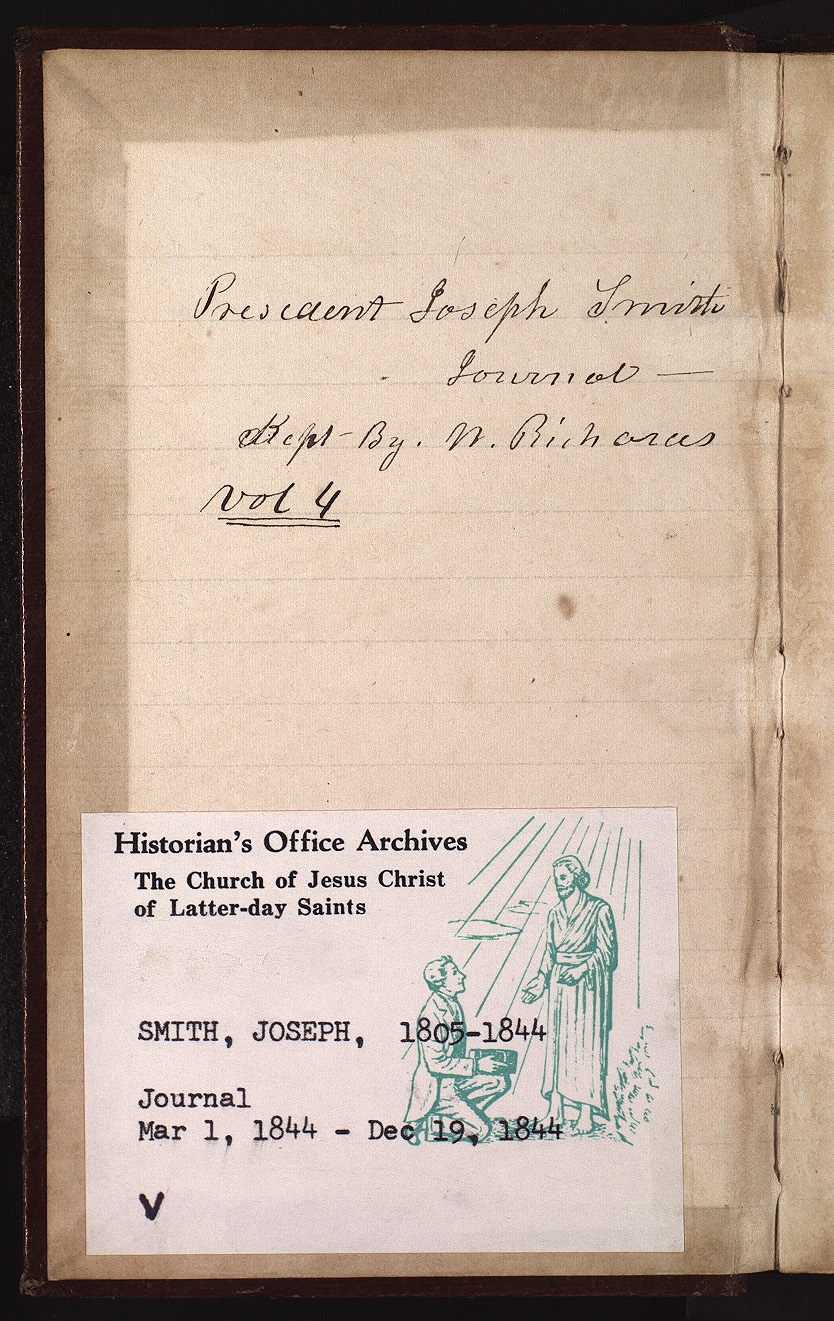 President Joseph Smith
Journal —
Kept By. W. Richards
Vol 4
Historian's Office Archives
The Church of Jesus Christ
of Latter-day Saints
SMITH, JOSEPH, 1805-1844
Journal
Mar 1, 1844 - Dec 19, 1844
V